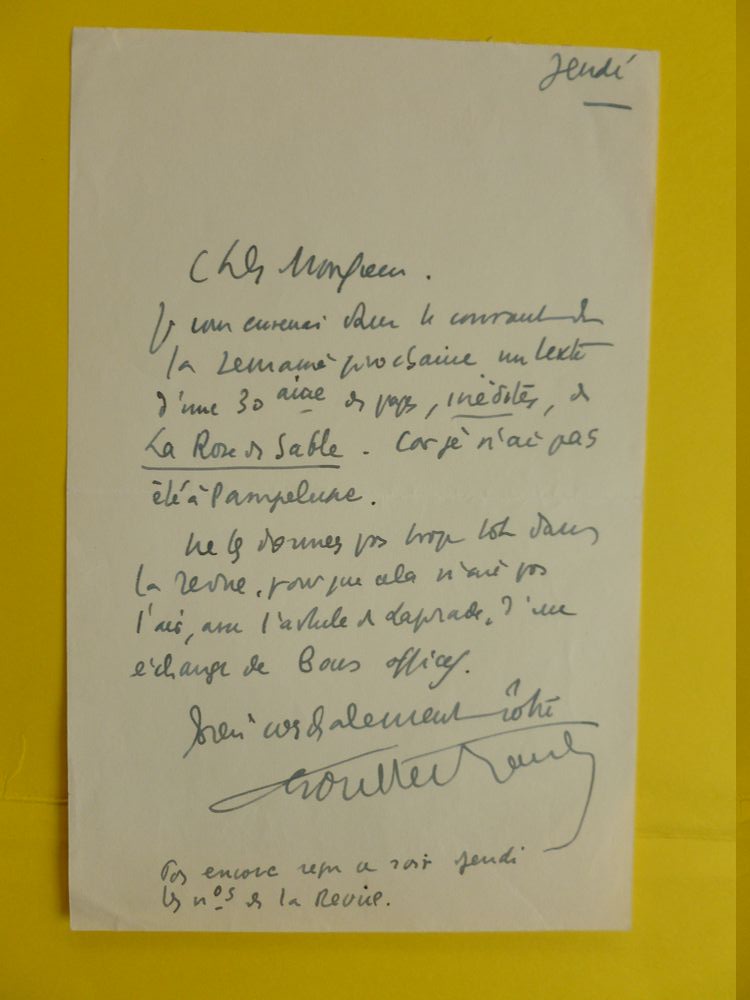 Jeudi
Cher Monsieur.
Je vous enverrai dans le courant de
la semaine prochaine un texte
d'une 30 aine de pages, inédites, de
La Rose de Sable. Car je n'ai pas
été à Pampelune.
Ne les donnez pas trop tôt dans
la revue, pour que cela n'ait pas
l'air, avec l'article de Laprade, d'un
échange de bons offices.
cordialement vôtre
Montherlant
Pas encore reçu ce soir jeudi
les nos de la Revue.